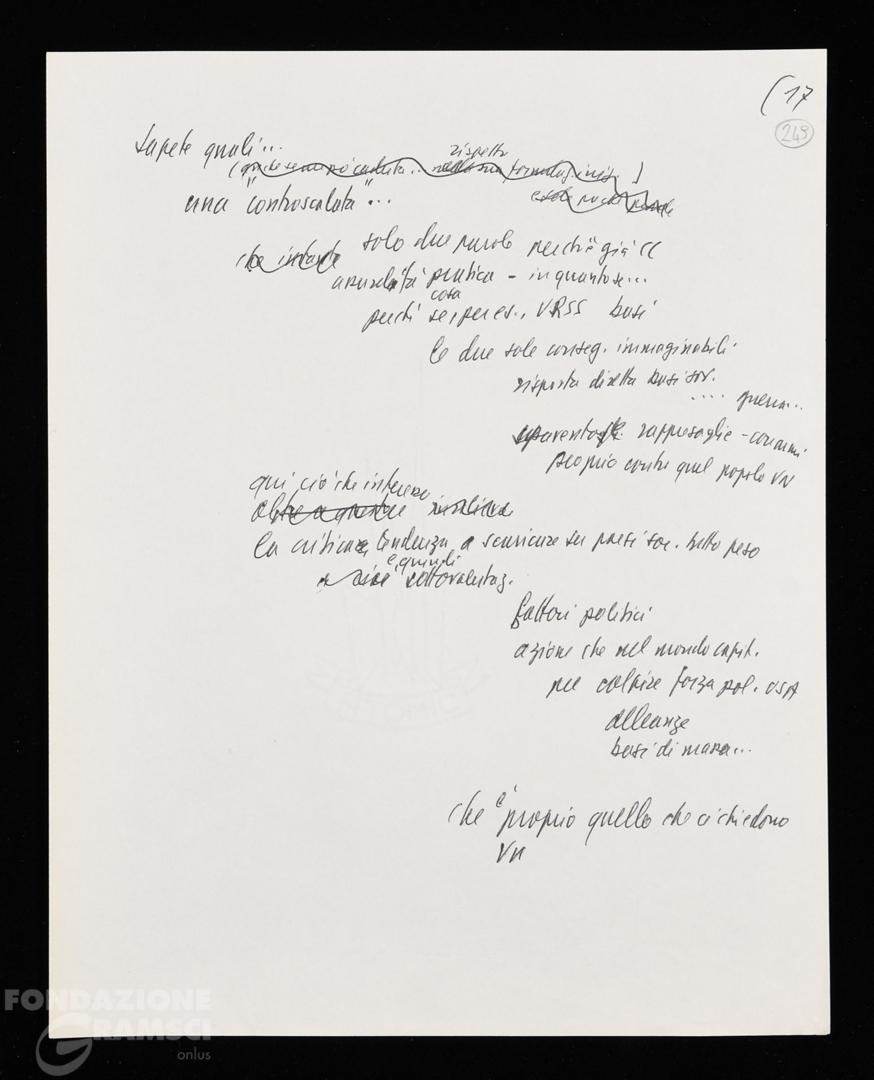 (17
249
sapete quali...
rispetto
(anche se un po' caduta.. nella sua formulaz. iniz. )
una "controscalata"...
solo due parole perché già CC
assurdità pratica - in quanto se...
cosa
perché se, per es., URSS basi
le due sole conseg. immaginabili.
risposta diretta basi sov.
.... guerra...
spaventose rappresaglie - comuni
proprio contro quel popolo VN
qui ciò che interessa
oltre a questo
la critica tendenza a scaricare su paesi soc. tutto peso
e quindi
cioè sottovalutaz.
fattori politici
azione che nel mondo capit.
per colpire forza pol. USA
alleanze
basi di massa...
che è proprio quello che ci chiedono
VN
FONDAZIONE
GRAMSCI
onlus